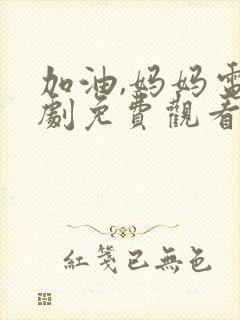 加油,妈妈電
劇免費觀看
紅箋已無色